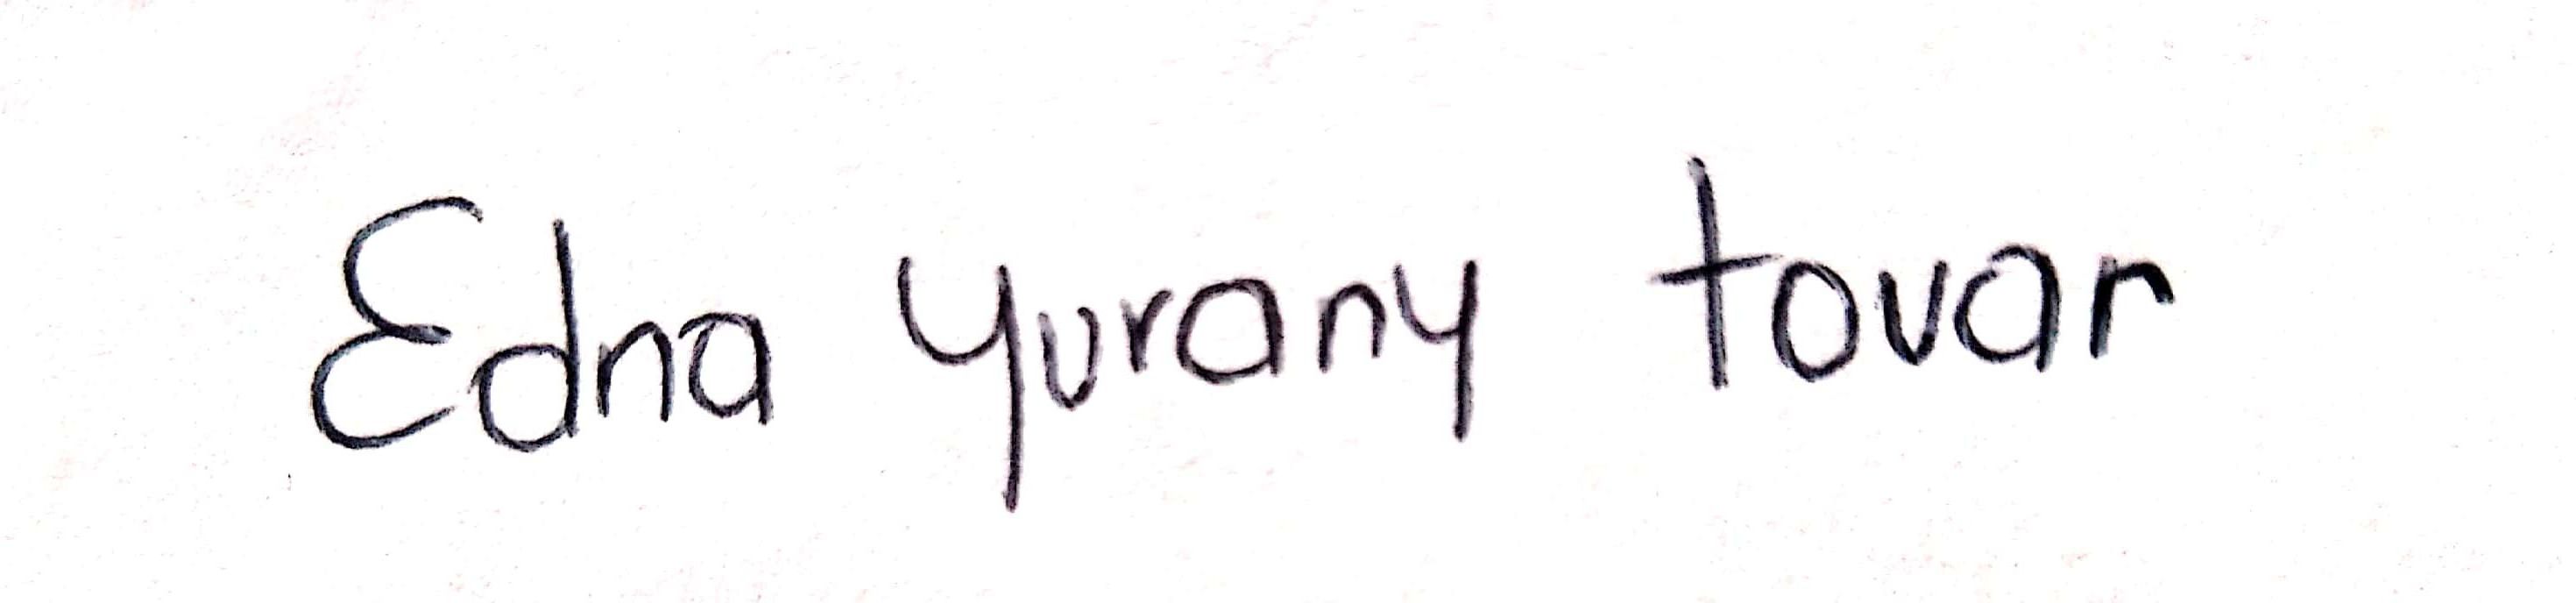 Edna yurany tovar